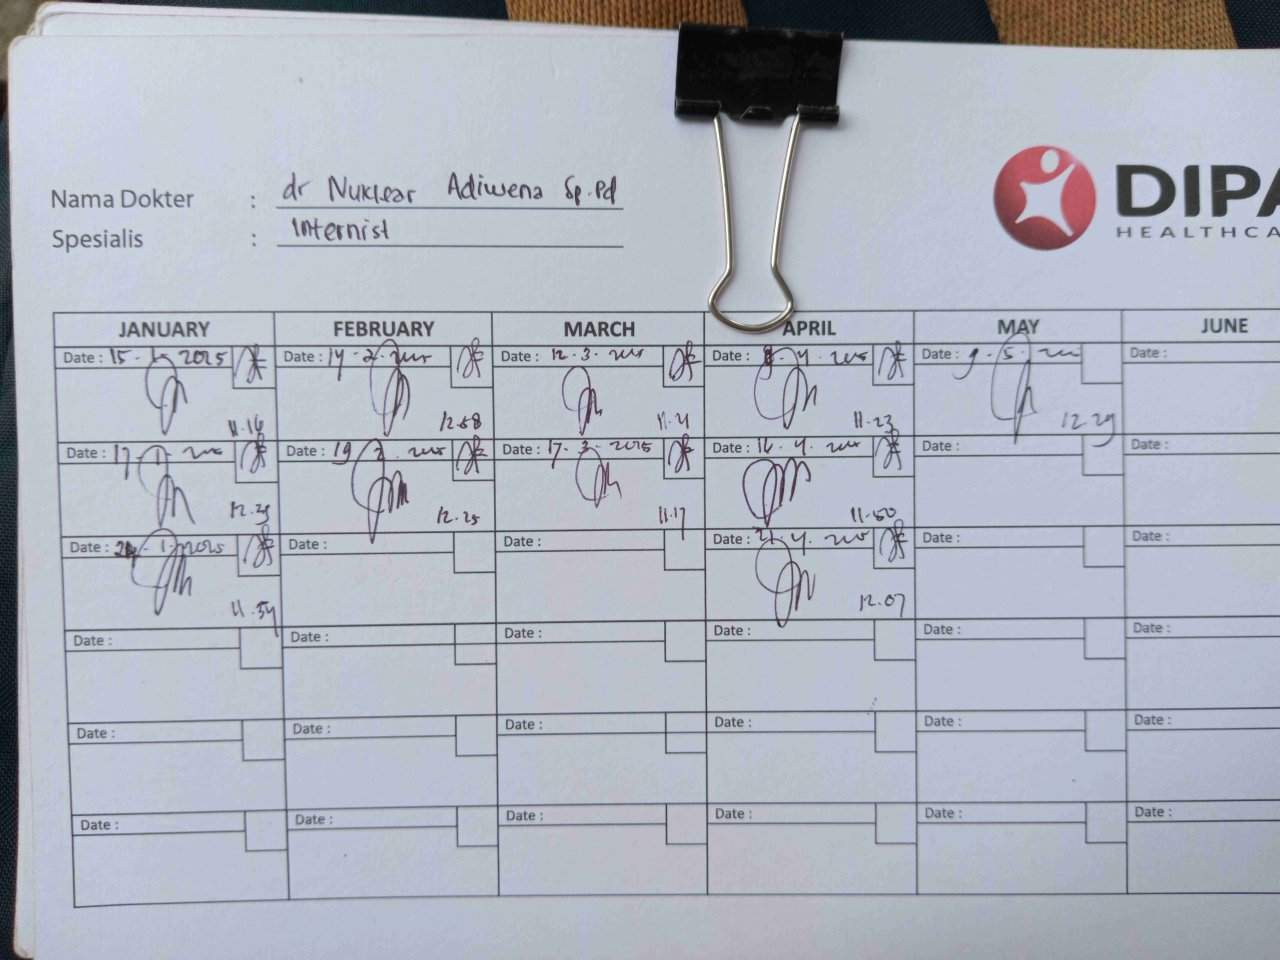 Nama Dokter : dr Nuklear Adiwena Sp.Pd
Spesialis : Internist
DIPA
HEALTHCA
JANUARY FEBRUARY MARCH APRIL MAY JUNE
Date : 15-1-2025 Date : 14-2-2025 Date : 12-3-2025 Date : 8-4-2025 Date : 9-5- Date :
11.16 12.58 11.21 11.23 12.29
Date : 17-1-2025 Date : 19 2 2025 Date : 17-3-2025 Date : 16-4-2025 Date : Date :
12.23 12.25 11.17 11.50
Date : 1-2025 Date : Date : Date : 21-4-2025 Date : Date :
11.54 12.07
Date : Date : Date : Date : Date : Date :
Date : Date : Date : Date : Date : Date :
Date : Date : Date : Date : Date : Date :